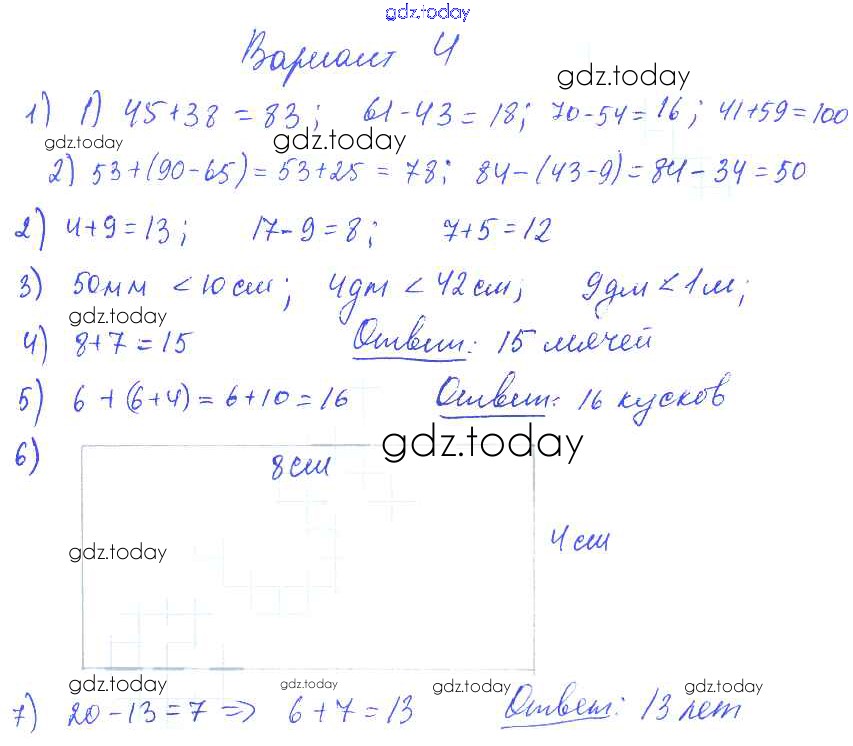 gdz.today
Вариант 4
gdz.today
1) 1) 45+38=83; 61-43=18; 70-54=16; 41+59=100
gdz.today gdz.today
2) 53+(90-65)=53+25=78; 84-(43-9)=84-34=50
2) 4+9=13; 17-9=8; 7+5=12
3) 50мм <10см; 4дм < 42см; 9дм <1м;
gdz.today
4) 8+7=15 Ответ: 15 мячей
5) 6+(6+4)=6+10=16 Ответ: 16 кусков
gdz.today
6) 8см
4см
gdz.today
gdz.today gdz.today gdz.today gdz.today
7) 20-13=7 => 6+7=13 Ответ: 13 лет